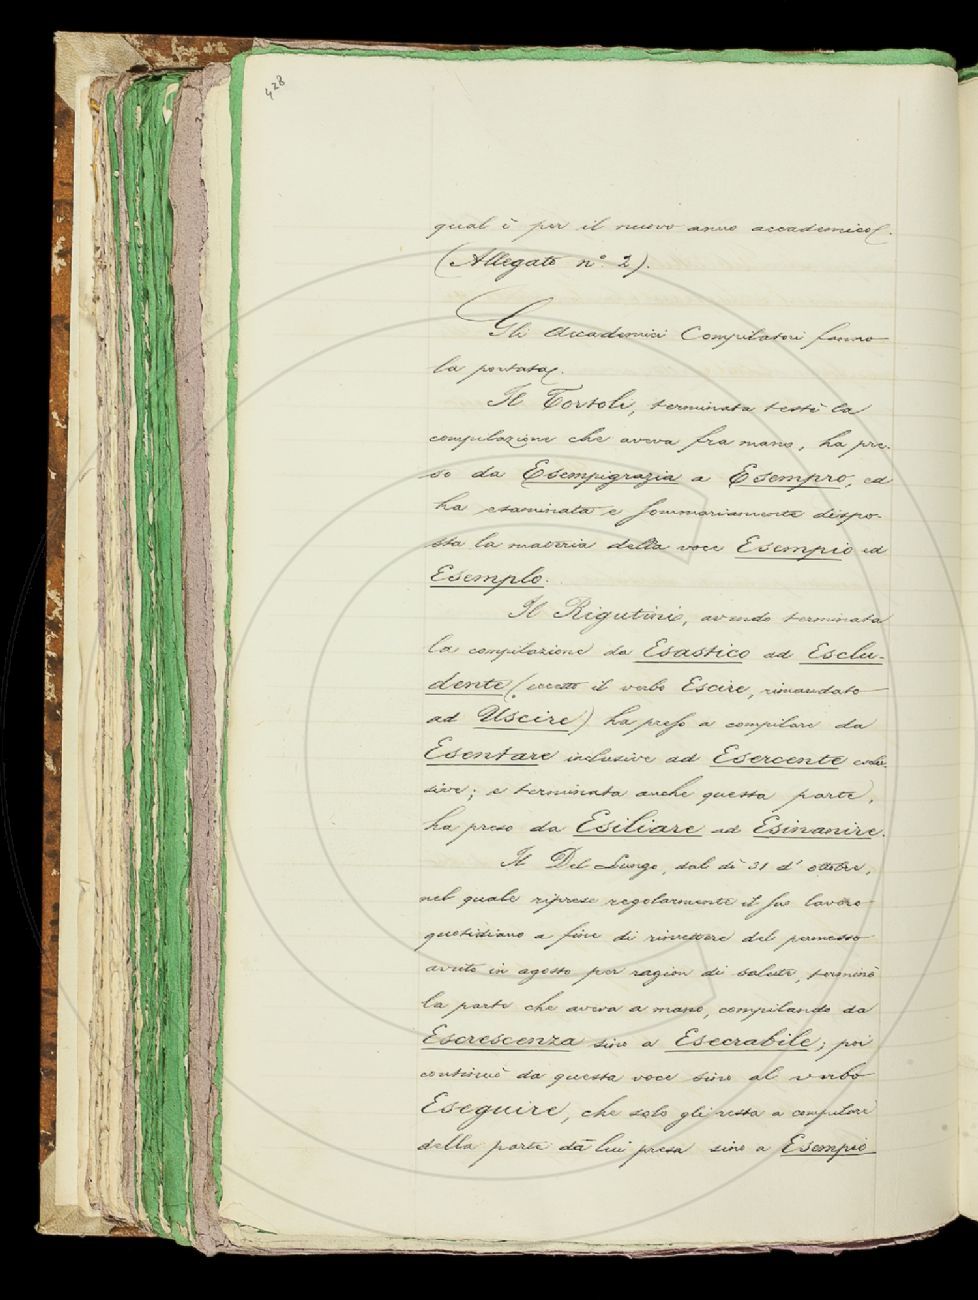 428
qual è per il nuovo anno accademico.
(Allegato n.° 2).
Gli Accademici Compilatori fanno
la portata.
Il Tortoli, terminata testè la
compilazione che aveva fra mano, ha pre-
so da Esempigrazia a Esempro, ed
ha esaminata e sommariamente dispo-
sta la materia della voce Esempio ed
Esemplo.
Il Rigutini, avendo terminata
la compilazione da Esastico ad Esclu-
dente (eccetto il verbo Escire, rimandato
ad Uscire) ha preso a compilare da
Esentare inclusive ad Esercente exclu-
sive; e terminata anche questa parte,
ha preso da Esiliare ad Esinanire.
Il Del Lungo, dal dì 31 d'ottobre,
nel quale riprese regolarmente il suo lavoro
quotidiano a fine di rimettere del permesso
avuto in agosto per ragion di salute, terminò
la parte che aveva a mano, compilando da
Escrescenza sino a Esecrabile; poi
continuò da questa voce sino al verbo
Eseguire, che solo gli resta a compilare
della parte da lui presa sino a Esempio